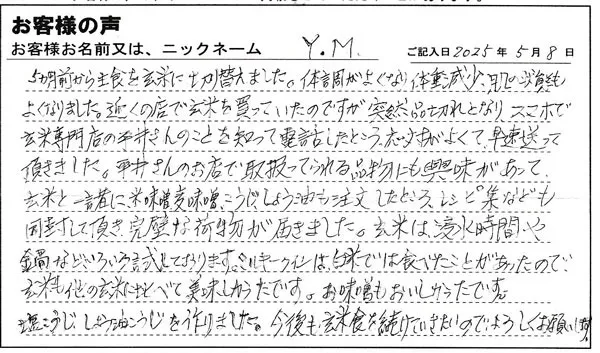 お客様の声
お客様お名前又は、ニックネーム Y.M. ご記入日2025年5月8日
5ヵ月前から主食を玄米に切り替えました。体調がよくなり体重減少、肌の状態も
よくなりました。近くの店で玄米を買っていたのですが突然品切れとなり、スマホで
玄米専門店の平井さんのことを知って電話したところ、たいおうがよくて、早速送って
頂きました。平井さんのお店で取扱ってられる品物にも興味があって、
玄米と一諸に米味噌麦味噌、こうじ、しょう油も注文したところ、レシピ集なども
同封して頂き、完璧な荷物が届きました。玄米は、浸水時間や
鍋などいろいろ試しております。ミルキークイーンは、白米では食べたことがあったので、
玄米も他の玄米に比べて美味しかったです。お味噌もおいしかったです。
塩こうじ、しょう油こうじを作りました。今後も玄米食を続けていきたいのでよろしくお願いします